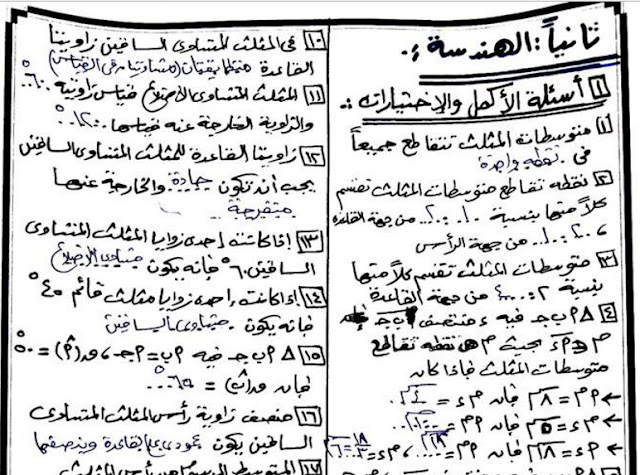 ثانياً : الهندسة :
١ أسئلة الأكمل والإختيارات :
١ متوسطات المثلث تتقاطع جميعاً
في نقطة واحدة
٢ نقطة تقاطع متوسطات المثلث تقسم
كلاً منها بنسبة ١ : ٢ من جهة القاعدة
، ٢ : ١ من جهة الرأس
٣ متوسطات المثلث تقسم كلاً منها
بنسبة ٢ : ٤ من جهة القاعدة
٤ △ ٢ب جـ فيه ء منتصف ب جـ
بحيث م هى نقطة تقاطع
متوسطات المثلث فإذا كان
فإن م ء =
فإن م ء =
فإن
١٠ فى المثلث المتساوى الساقين زاويتا
القاعدة متطابقتان (متساويتان فى القياس)
١١ المثلث المتساوى الأضلاع قياس زاويته ٦٠°
والزاوية الخارجة عنه قياسها ١٢٠°
١٢ زاويتا القاعدة للمثلث المتساوى الساقين
يجب أن تكون حادة والخارجة عنها
منفرجة
١٣ إذا كانت إحدى زوايا المثلث المتساوى
الساقين ٦٠° فإنه يكون متساوى الأضلاع
١٤ إذا كانت إحدى زوايا مثلث قائم ٤٥°
فإنه يكون متساوى الساقين
١٥ △ ٢ب جـ فيه ٢ب = ٢جـ ، ق(٢) = ٥٠°
فإن = ٦٥°
١٦ منصف زاوية رأس المثلث المتساوى
الساقين يكون عمودى على القاعدة وينصفها
١٧